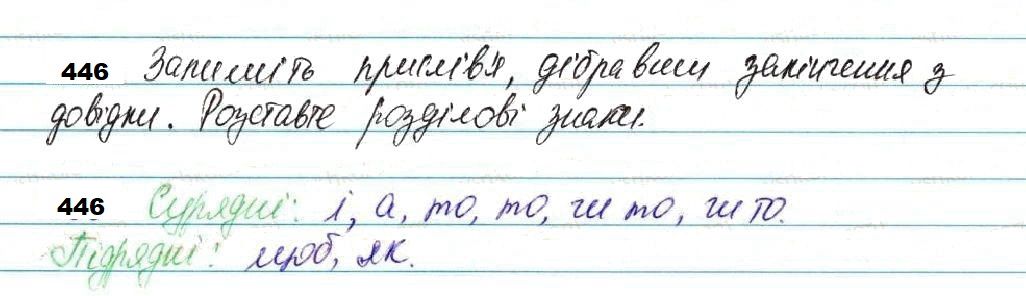 446 Запишіть прислів'я, дібравши закінчення з
довідки. Розставте розділові знаки.
446 Сурядні: і, а, то, то, чи то, чи то.
Підрядні: щоб, як.